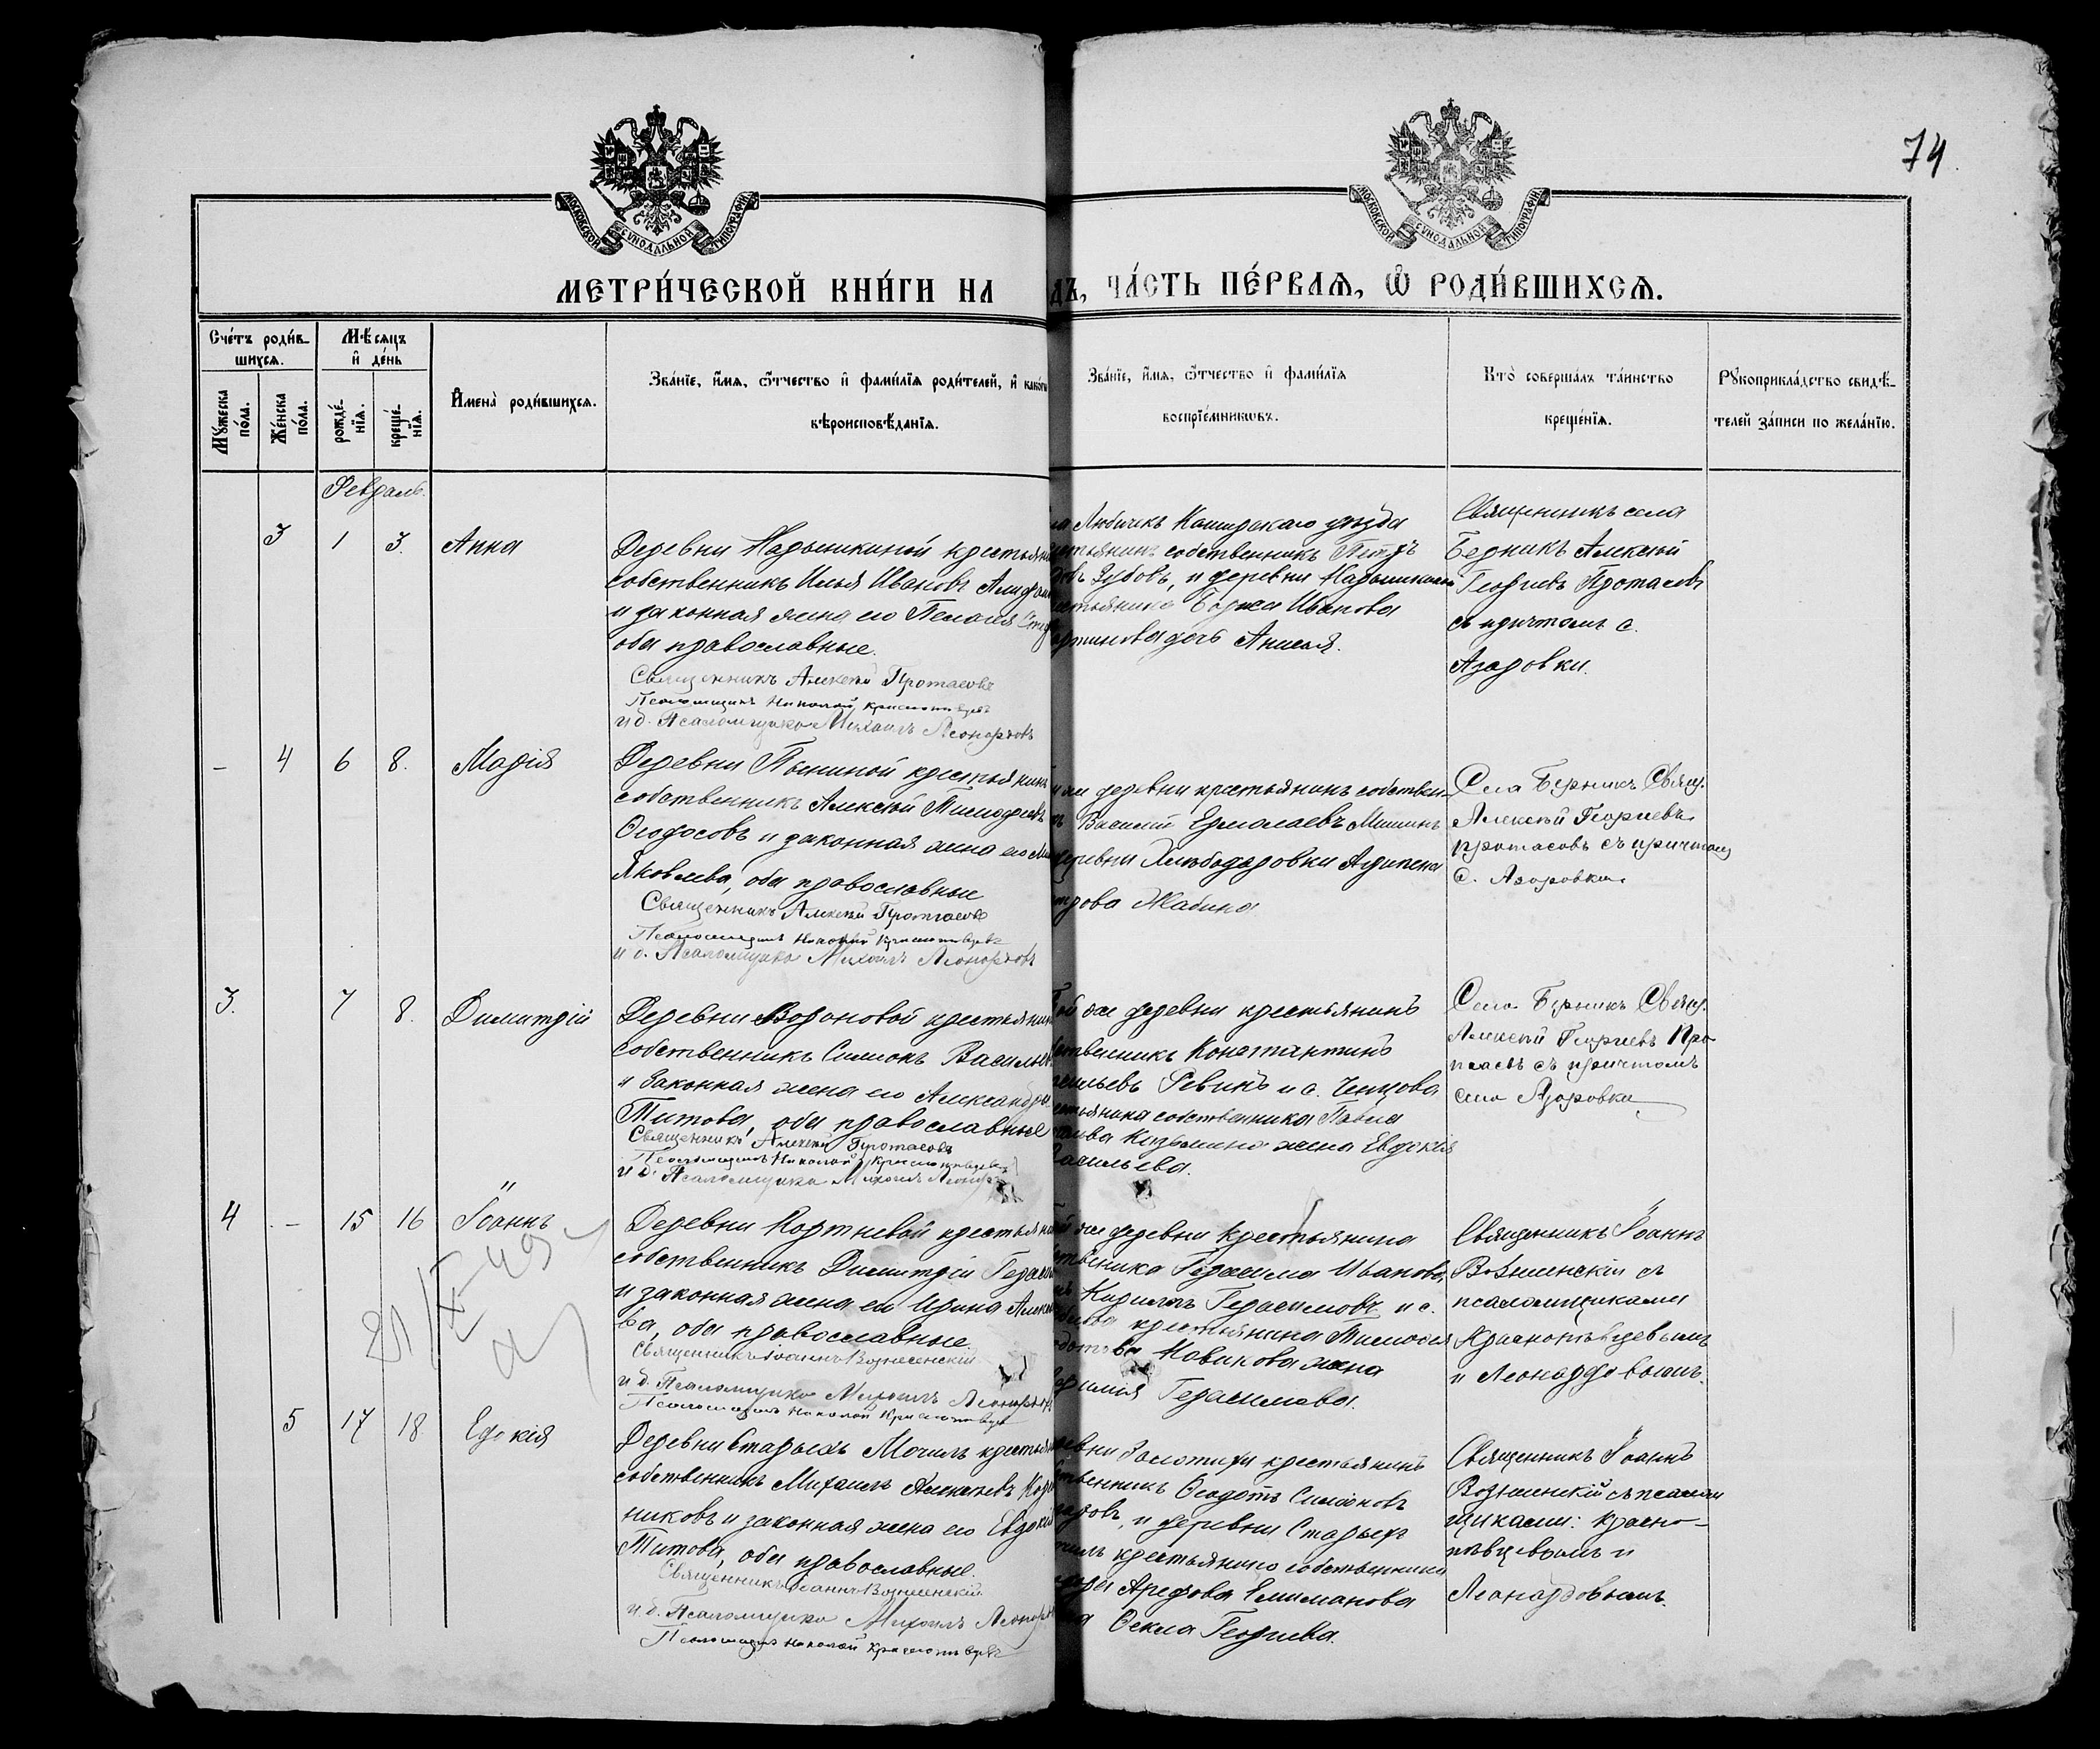 74
МОСКОВСКОЙ СѴНОДАЛЬНОЙ ТИПОГРАФІИ
МОСКОВСКОЙ СѴНОДАЛЬНОЙ ТИПОГРАФІИ
МЕТРИ́ЧЕСКОЙ КНИ́ГИ НА
ДЪ, ЧА́СТЬ ПЕ́РВАѦ, Ѿ РОДИ́ВШИХСѦ.
Сче́тъ роди́в-
шихсѧ.
Мѣ́сѧцъ
и҆ де́нь
Мꙋ́жеска
по́ла.
Же́нска
по́ла.
рожде́-
нїѧ.
креще́-
нїѧ.
И҆мена̀ роди́вшихсѧ.
Зва́нїе, и҆́мѧ, ѻ҆́тчество и҆ фами́лїѧ роди́телей, и҆ како́гѡ
вѣроисповѣ́данїѧ.
Зва́нїе, и҆́мѧ, ѻ҆́тчество и҆ фами́лїѧ
воспрїе́мникѡвъ.
Кто̀ соверша́лъ та́инство
креще́нїѧ.
Рꙋкоприкла́дство свидѣ́-
телей за́писи по жела́нїю.
Февраль.
3 1 3. Анна
Деревни Нарышкиной крестьянин
собственникъ Илья Ивановъ
и законная жена его Пелагія
оба православные.
Священникъ Алексѣй Протасовъ
Псаломщикъ Николай Краснопѣвцевъ
и д. Псаломщика Михаилъ Леонардовъ
Любичъ Каширскаго уѣзда
собственникъ Петръ
Зубовъ, и деревни Нарышкиной
Ивановa
дочь Анисья.
Священникъ села
Берникъ Алексѣй
Георгіевъ Протасовъ
съ причтомъ с.
Азаровки.
– 4 6 8. Марія
Деревни Пыниной крестьянинъ
собственникъ Алексѣй Тимофеевъ
и законная жена его
Яковлева, оба православные
Священникъ Алексѣй Протасовъ
Псаломщикъ Николай Краснопѣвцевъ
и д. Псаломщика Михаилъ Леонардовъ
деревни крестьянинъ собствен-
Василій Ермолаевъ Мишинъ
деревни Хлѣбодаровки Агрипена
Жабина
Села Берникъ Свящ.
Алексѣй Георгіевъ
Протасовъ съ причтомъ
с. Азаровки.
3. 7 8. Димитрій
Деревни Вороновой крестьянин
собственникъ Симіонъ Васильевъ
и законная жена его Александра
Титова, оба православные
Священникъ Алексѣй Протасовъ
Псаломщикъ Николай Краснопѣвцевъ
и д. Псаломщика Михаилъ Леонардовъ
той же деревни крестьянинъ
собственникъ Константинъ
Васильевъ Ревинъ и с. Ченцова
крестьянина собственника Павла
Кизьмина жена Евдокія
Васильева.
Села Берникъ Свящ.
Алексѣй Георгіевъ Про-
тасовъ съ причтомъ
села Азаровки
4 – 15 16 Іоаннъ
21/IX–49
Деревни Кортневой крестьянин
собственникъ Димитрій
и законная жена его Ирина
ва, оба православные.
Священникъ Іоаннъ Вознесенскій
и д. Псаломщика Михаилъ Леонардовъ
Псаломщикъ Николай Краснопѣвцевъ
же деревни крестьянина
собственника Герасима Иванова
Кирилъ Герасимовъ и с.
крестьянина Тимофея
Новикова жена
Герасимова.
Священникъ Іоаннъ
Вознесенскій съ
псаломщиками
Краснопѣвцевымъ
и Леонардовымъ.
5 17 18 Евдокія
Деревни Старыхъ Мочилъ крестьян
собственникъ Михаилъ Алексѣевъ
никовъ и законная жена его Евдокія
Титова, оба православные.
Священникъ Іоаннъ Вознесенскій
и д. Псаломщика Михаилъ Леонардовъ
Псаломщикъ Николай Краснопѣвцевъ
крестьянинъ
собственникъ Ѳеодотъ Симіоновъ
и деревни Старыхъ
крестьянина собственника
Арефова Елиманова
Ѳекла Георгіева.
Священникъ Іоаннъ
Вознесенскій съ псалом
щиками: Красно-
пѣвцевымъ и
Леонардовымъ.